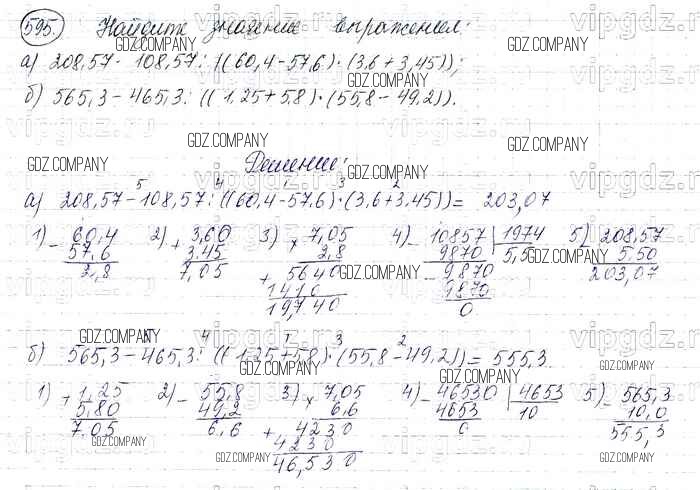 595. Найдите значение выражения:
GDZ.COMPANY
а) 208,57 - 108,57 : ((60,4 - 57,6) · (3,6 + 3,45));
GDZ.COMPANY
б) 565,3 - 465,3 : ((1,25 + 5,8) · (55,8 - 49,2)).
GDZ.COMPANY
vipgdz.ru
GDZ.COMPANY
GDZ.COMPANY
Решение:
5 4 1 3 2
а) 208,57 - 108,57 : ((60,4 - 57,6) · (3,6 + 3,45)) = 203,07
1) - 60,4 2) + 3,60 3) × 7,05 4) - 10857 | 1974 5) - 208,57
57,6 3,45 2,8 9870 5,5 5,50
2,8 7,05 + 5640 - 9870 203,07
1410 9870
19,740 0
GDZ.COMPANY GDZ.COMPANY GDZ.COMPANY
GDZ.COMPANY GDZ.COMPANY
5 4 1 3 2
б) 565,3 - 465,3 : ((1,25 + 5,8) · (55,8 - 49,2)) = 555,3
GDZ.COMPANY
1) + 1,25 2) - 55,8 3) × 7,05 4) - 46530 | 4653 5) - 565,3
5,80 49,2 6,6 4653 10 10,0
7,05 6,6 + 4230 0 555,3
4230
46,530
GDZ.COMPANY GDZ.COMPANY GDZ.COMPANY
GDZ.COMPANY